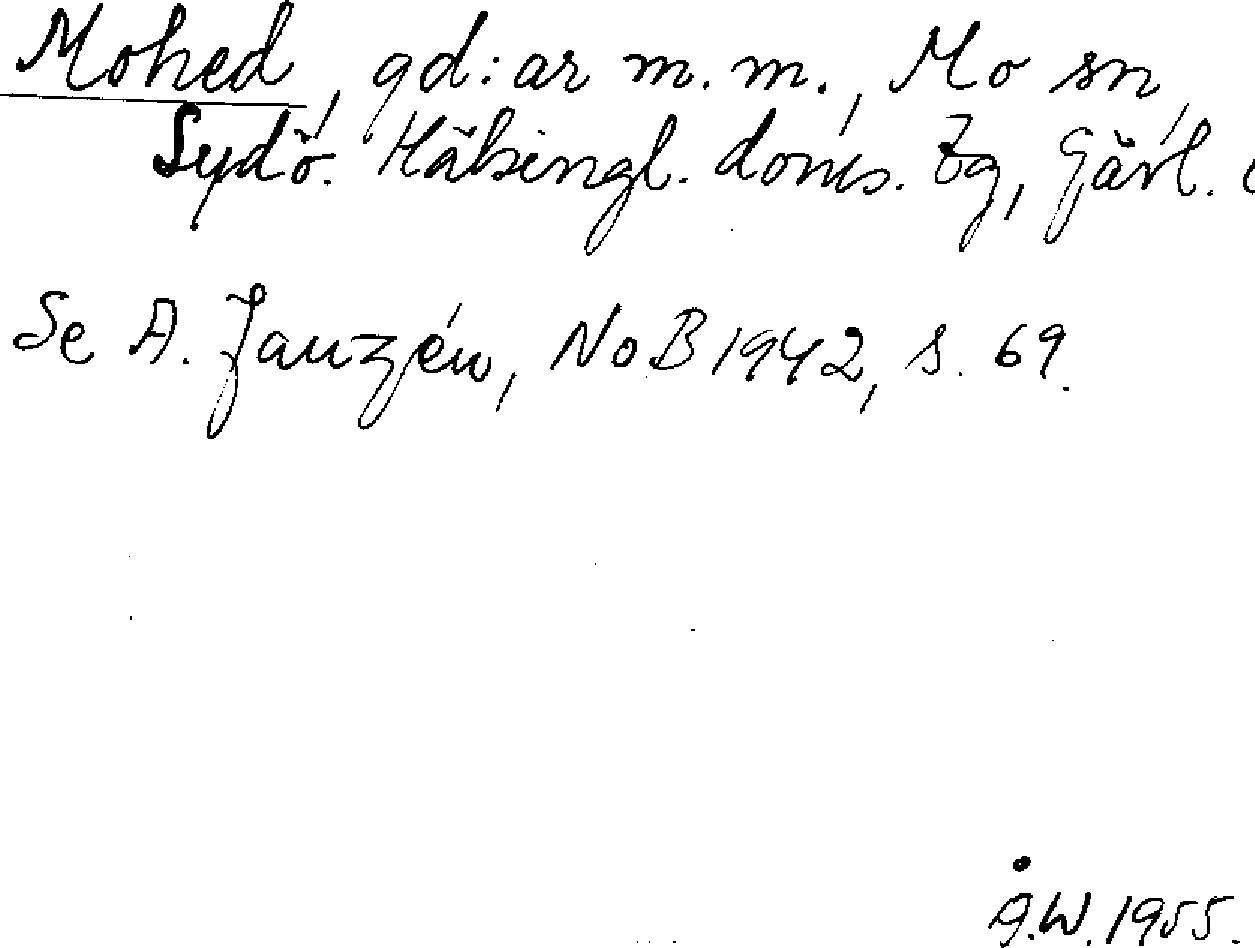 Mohed, gd:ar m.m., Mo sn,
Sydö. Hälsingl. doms. tg, Gävl.
Se A. Janzén, NoB 1942, s. 69.
Å.W. 1955.